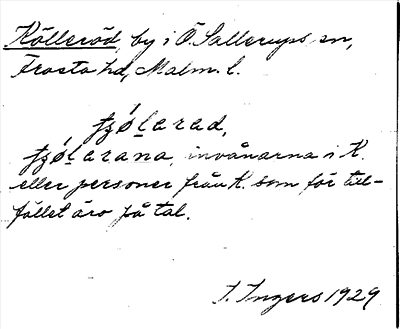 Källeröd, by i Ö. Sallerups sn,
Frosta hd, Malm. l.
tjǿlarad,
tjǿlarana, invånarna i K.
eller personer från K. som för till-
fället äro på tal.
I. Ingers 1929